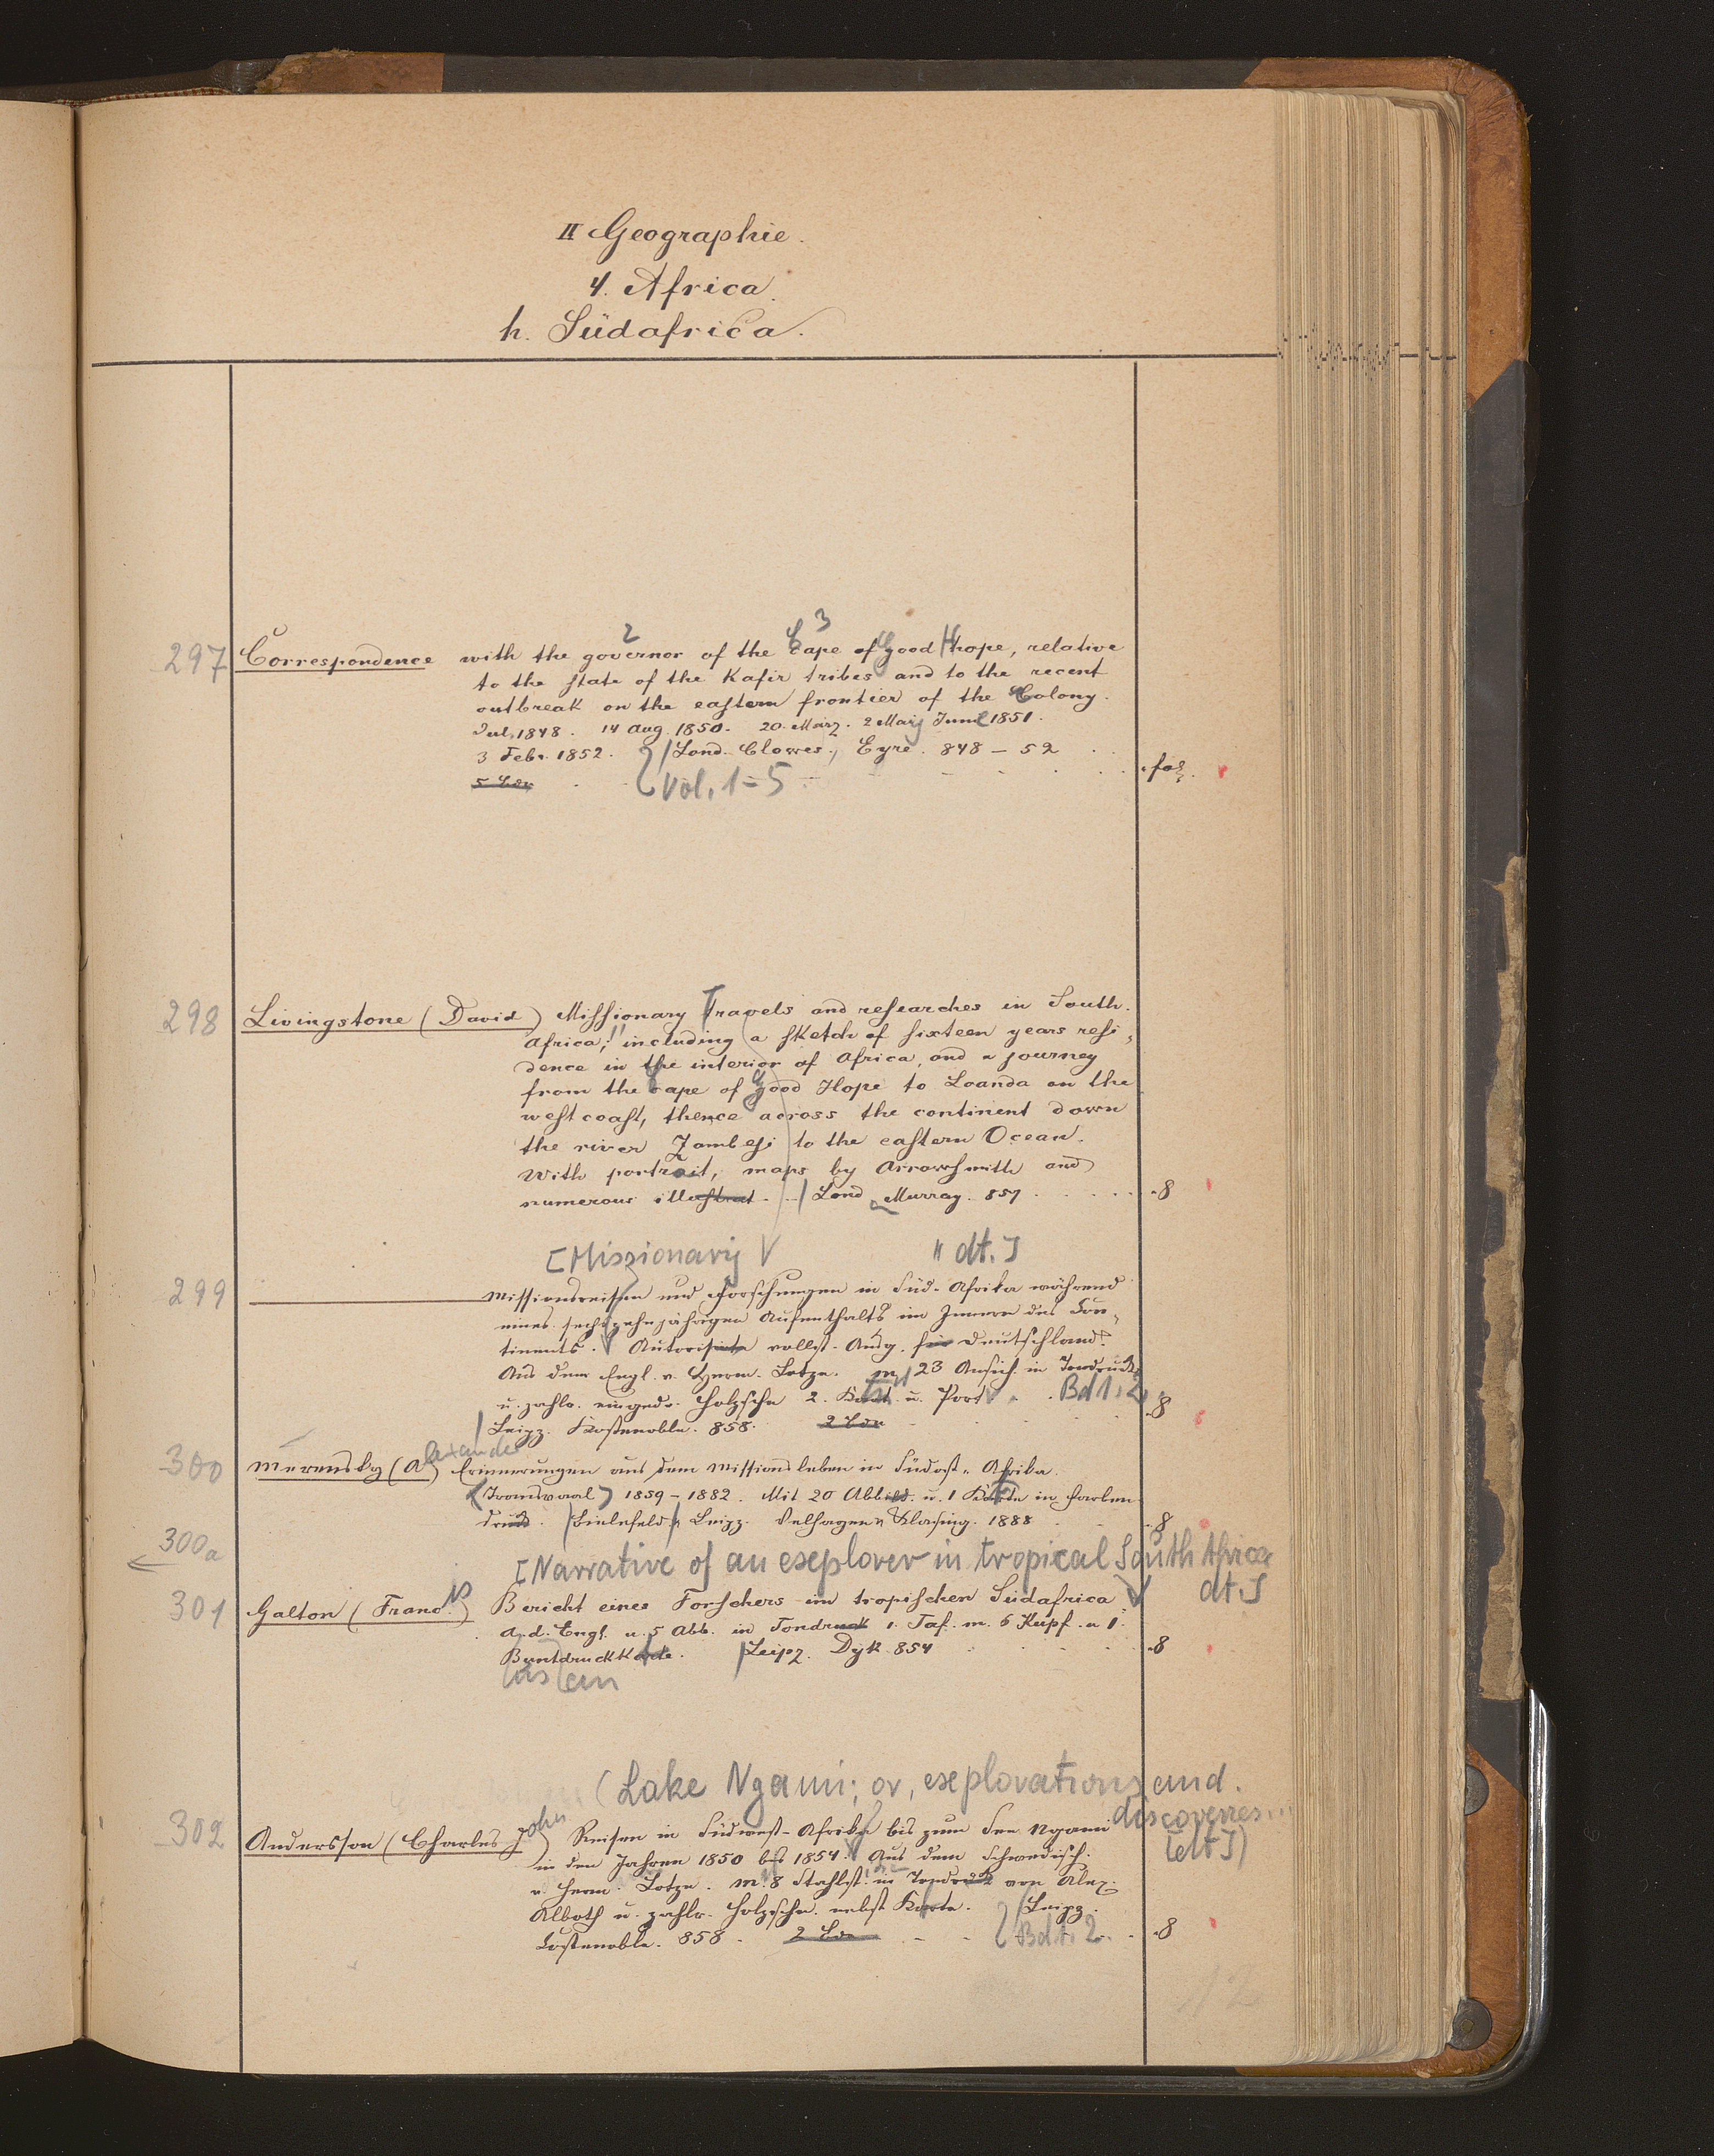 II Geographie.
4. Africa.
h. Südafrica.
2 3
297 Correspondence with the governor of the Cape of Good Hope, relative
to the state of the Kafir tribes and to the recent
outbreak on the eastern frontier of the Colony.
Jul. 1848. 14 Aug. 1850. 20. März. 2 Maiy June 1851.
3 Febr. 1852. Lond. Clowes, Eyre. 848-52
5 Bde Vol. 1-5 fol.
298 Livingstone (David) Missionary Travels and researches in South.
Africa; including a sketch of sixteen years resi-
dence in the interior of Africa, and a journey
from the Cape of Good Hope to Loanda on the
west coast, thence across the continent down
the river Zambesi to the eastern Ocean.
With portrait, maps by Arrowsmith and
numerous illustrat. Lond. Murray. 857 8
[Missionary dt.]
299 Missionsreisen und Forschungen in Süd-Afrika während
eines sechszehnjährigen Aufenthalts im Innern des Con-
tinents. Autorisirte vollst. Ausg. für Deutschland.
Aus dem Engl. v. Herm. Lotze. m. 23 Ansich. in Tondruck
u. zahlr. eingedr. Holzschn. 2. Kart. u. Port. Bd 1. 2
Leipz. Costenoble. 858. 2 Bde 8
300 Merensky (Alexander) Erinnerungen aus dem Missionsleben in Südost-Afrika.
(Transvaal) 1859-1882. Mit 20 Abbild. u. 1 Karte in Farben
druck. Bielefeld u. Leipz. Velhagen u. Klasing. 1888 8
300a [Narrative of an explorer in tropical South Africa
dt.]
301 Galton (Francis) Bericht eines Forschers im tropischen Südafrica
A. d. Engl. u. 5 Abb. in Tondruck 1. Taf. m. 6 Kupf. u 1.
Buntdruckkarte. Leipz. Dyk. 854 8
(Lake Ngami; or, explorations and
discoveries...
302 Andersson (Charles John) Reisen in Südwest-Afrika bis zum See Ngami
[dt.])
in den Jahren 1850 bis 1854. Aus dem Schwedisch.
v. Herm. Lotze. m. 8 Stahlst. in Tondruck von Alex.
Alboth u. zahlr. Holzschn. nebst Karte. Leipz.
Costenoble. 858. 2 Bde Bd 1. 2. 8
12